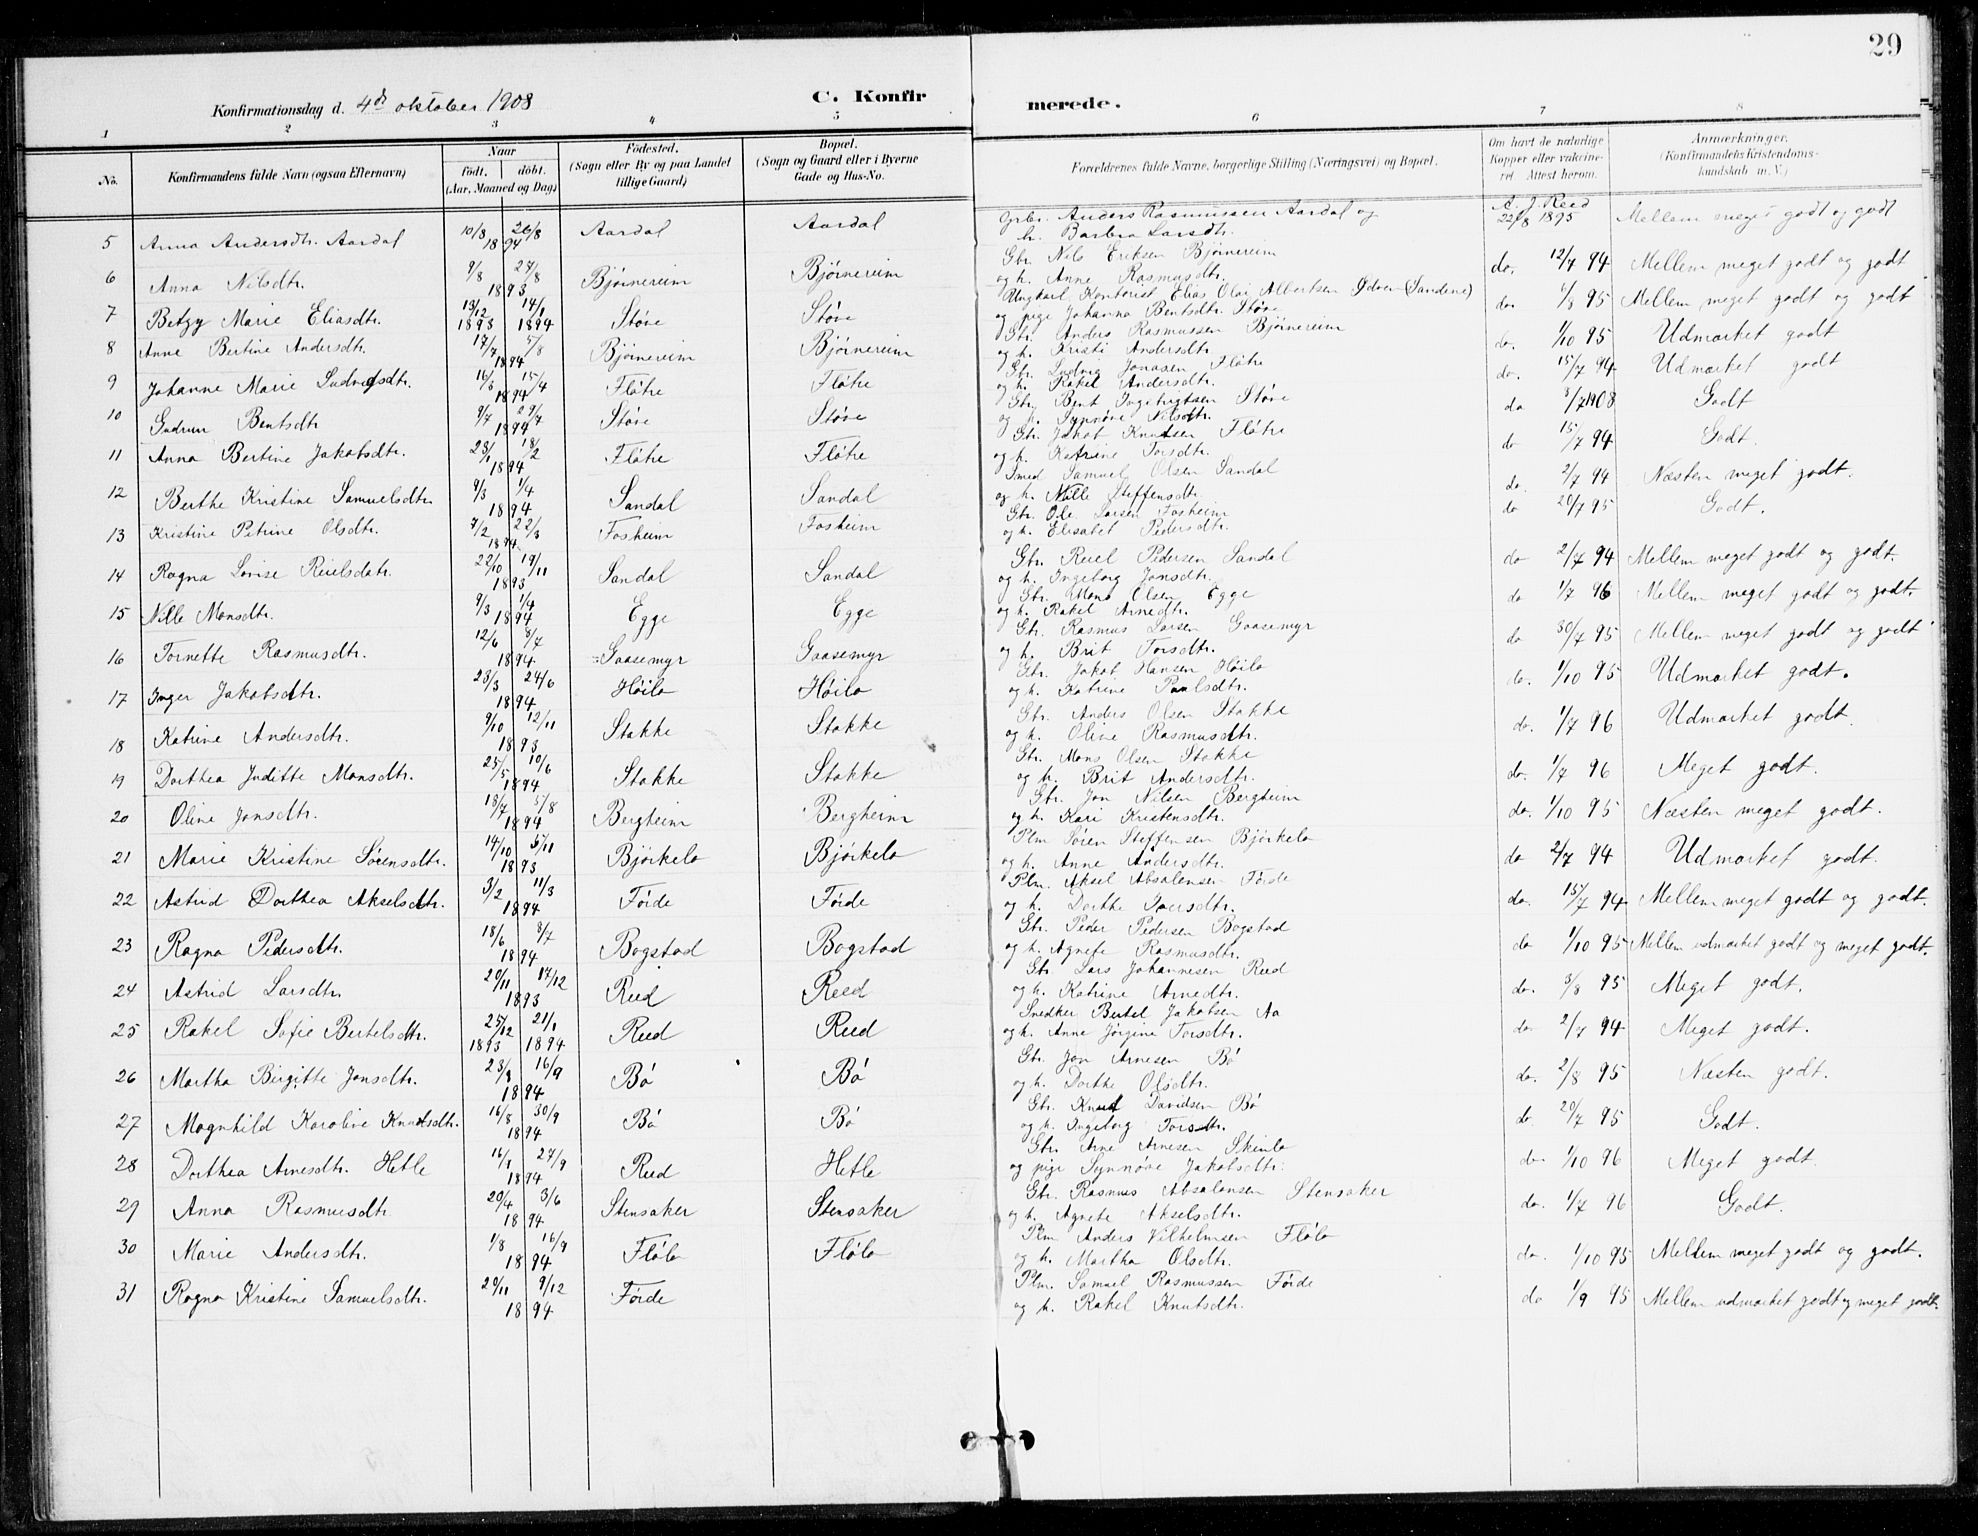 29
Konfirmationsdag d. 4de oktober 1908 C. Konfirmerede.
1 2 3 4 5 6 7 8
No. Konfirmandens fulde Navn (ogsaa Efternavn) Naar født. døbt. (Aar, Maaned og Dag) Fødested. (Sogn eller By og paa Landet tillige Gaard) Bopæl. (Sogn og Gaard eller i Byerne Gade og Hus-No. Forældrenes fulde Navne, borgerlige Stilling (Næringsvei) og Bopæl. Om havt de naturlige Kopper eller vaccineret. Attest herom. Anmærkninger. (Konfirmandens Kristendomskundskab m. V.)
5 Anna Andersdtr. Aardal 10/8 26/8 1894 Aardal Aardal Gbr. Anders Rasmussen Aardal og h. Barbra Larsdtr. A. J. Reed 22/8 1895 Mellem meget godt og godt
6 Anna Nilsdtr. 9/8 27/8 1893 Bjørnereim Bjørnereim Gbr. Nils Eriksen Bjørnereim og h. Anne Rasmusdtr. do. 12/7 94 Mellem meget godt og godt
7 Betzy Marie Eliasdtr. 13/12 1893 14/1 1894 Støve Støve Ungkarl Kontorist Elias Olai Albertsen (Sandene) og pige Johanna Bentsdtr. Støve do. 1/8 95 Mellem meget godt og godt
8 Anne Bertine Andersdtr. 17/7 5/8 1894 Bjørnereim Bjørnereim Gbr. Anders Rasmussen Bjørnereim og h. Kristi Andersdtr. do. 1/10 95 Udmærket godt
9 Johanne Marie Ludvigsdtr. 16/3 15/4 1894 Fløtre Fløtre Gbr. Ludvig Jonasen Fløtre og h. Rakel Andersdtr. do. 15/7 94 Udmærket godt
10 Gudrun Bentsdtr 9/7 29/7 1894 Støve Støve Gbr. Bent Ingebrigtsen Støve og h. Synnøve Nilsdtr. do 8/7 1908 Godt
11 Anna Bertine Jakobsdtr. 23/1 18/2 1894 Fløtre Fløtre Gbr. Jakob Knutsen Fløtre og h. Katrine Torsdtr. do 15/7 94 Godt.
12 Berthe Kristine Samuelsdtr 9/3 1/4 1894 Sandal Sandal Smed Samuel Olsen Sandal og h. Nille Steffensdtr. do. 2/7 94 Næsten meget godt.
13 Kristine Petrine Olsdtr. 7/2 22/3 1894 Fosheim Fosheim Gbr. Ole Larsen Fosheim og h. Elisabet Pedersdtr. do 20/7 95 Godt.
14 Ragna Lovise Reielsdatr. 22/10 19/11 1893 Sandal Sandal Gbr. Reiel Pedersen Sandal og h. Ingeborg Jonsdtr. do 2/7 94 Mellem meget godt og godt.
15 Nille Monsdtr. 9/3 1/4 1894 Egge Egge Gbr. Mons Olsen Egge og h. Rakel Arnedtr. do 1/7 96 Mellem meget godt og godt.
16 Tornette Rasmusdtr. 12/6 8/7 1894 Gaasemyr Gaasemyr Gbr. Rasmus Larsen Gaasemyr og h. Brit Torsdtr. do 30/7 95 Mellem meget godt og godt
17 Inger Jakobsdtr. 23/3 24/6 1894 Høilo Høilo Gbr. Jakob Hansen Høilo og h. Katrine Paulsdtr. do. 1/10 95 Udmærket godt.
18 Katrine Andersdtr. 9/10 12/11 1893 Stakke Stakke Gbr. Anders Olsen Stakke og h. Oline Rasmusdtr. do. 1/7 96 Udmærket godt.
19 Dorthea Juditte Monsdtr. 25/5 10/6 1894 Stakke Stakke Gbr. Mons Olsen Stakke og h. Brit Andersdtr. do. 1/7 96 Meget godt.
20 Oline Jonsdtr. 18/7 5/8 1894 Bergheim Bergheim Gbr. Jon Nilsen Bergheim og h. Kari Kristensdtr. do. 1/10 95 Næsten meget godt.
21 Marie Kristine Sørensdtr. 14/10 5/11 1893 Bjørkelo Bjørkelo Plm Søren Steffensen Bjørkelo og h. Anne Andersdtr. do 2/7 94 Udmærket godt.
22 Astrid Dorthea Akselsdtr. 3/2 11/3 1894 Førde Førde Plm. Aksel Absalonsen Førde og h. Dorthe Iversdtr. do. 15/7 94 Mellem meget godt og godt.
23 Ragna Pedersdtr. 18/6 8/7 1894 Bogstad Bogstad Gbr. Peder Pedersen Bogstad og h. Agnete Rasmusdtr. do 1/10 95 Mellem udmærket godt og meget godt.
24 Astrid Larsdtr 20/11 17/12 1893 Reed Reed Gbr. Lars Johannesen Reed og h. Katrine Arnedtr. do. 3/8 95 Meget godt.
25 Rakel Sofie Bertelsdtr. 25/12 1893 21/1 1894 Reed Reed Snedker Bertel Jakobsen Aa og h. Anne Jørgine Torsdtr. do 2/7 94 Meget godt.
26 Martha Birgitte Jonsdtr. 23/8 16/9 1894 Bø Bø Gbr. Jon Arnesen Bø og h. Dorthe Olsdtr. do. 2/8 95 Næsten godt.
27 Magnhild Karoline Knutsdtr. 16/8 30/9 1894 Bø Bø Gbr. Knut Davidsen Bø og h. Ingeborg Torsdtr. do 20/7 95 Godt.
28 Dorthea Arnesdtr. Hetle 16/9 27/9 1894 Reed Hetle Gbr. Arne Arnesen Skinlo og pige Synnøve Jakobsdtr. do 1/10 96 Meget godt.
29 Anna Rasmusdtr 20/4 3/6 1894 Stensaker Stensaker Gbr. Rasmus Absalonsen Stensaker og h. Agnete Akselsdtr. do. 1/7 96 Godt.
30 Marie Andersdtr. 1/8 16/9 1894 Fløla Fløla Plm Anders Vilhelmsen Fløla og h. Martha Olsdtr. do. 1/10 95 Mellem meget godt og godt.
31 Ragna Kristine Samuelsdtr. 20/11 9/12 1894 Førde Plm. Samuel Rasmussen Førde og h. Rakel Knutsdtr. do 1/9 95 Mellem udmærket godt og meget godt.